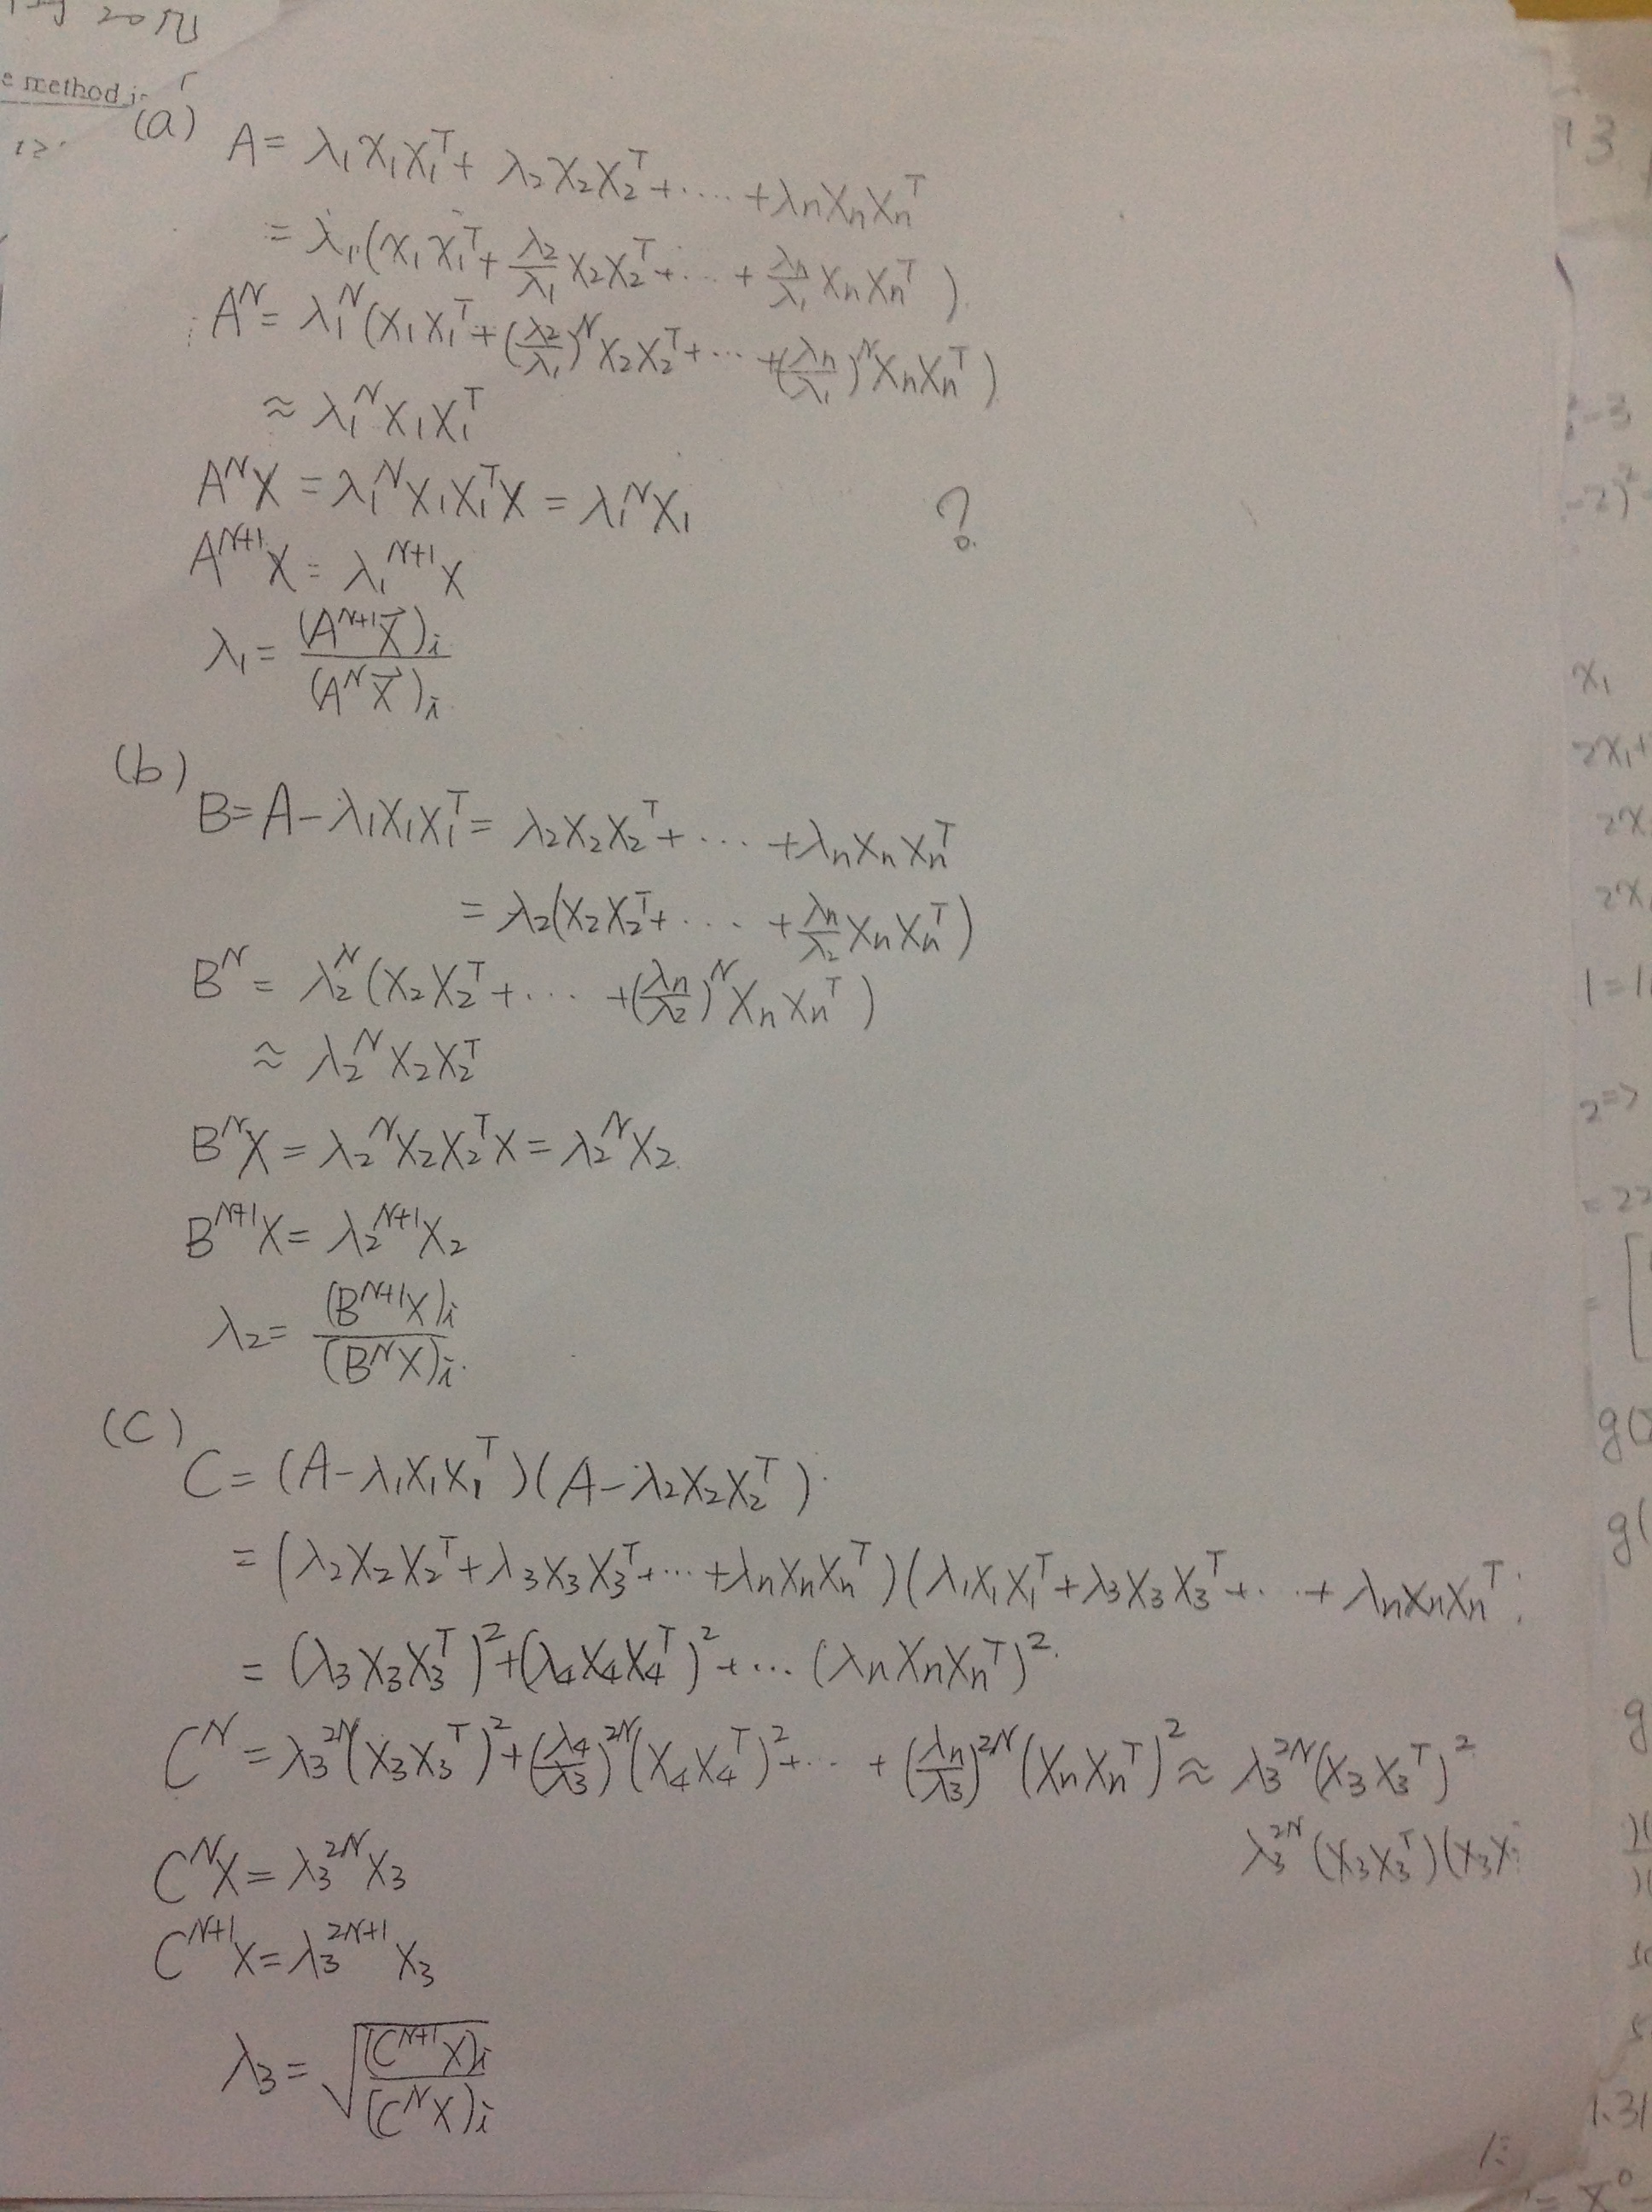 e method
(a) A = λ₁X₁X₁ᵀ + λ₂X₂X₂ᵀ + .... + λₙXₙXₙᵀ
= λ₁(X₁X₁ᵀ + λ₂/λ₁ X₂X₂ᵀ + ... + λₙ/λ₁ XₙXₙᵀ)
Aᴺ = λ₁ᴺ(X₁X₁ᵀ + (λ₂/λ₁)ᴺX₂X₂ᵀ + ... + (λₙ/λ₁)ᴺXₙXₙᵀ)
≈ λ₁ᴺX₁X₁ᵀ
AᴺX = λ₁ᴺX₁X₁ᵀX = λ₁ᴺX₁ ?
Aᴺ⁺¹X = λ₁ᴺ⁺¹X
λ₁ = (Aᴺ⁺¹X⃗)ᵢ / (AᴺX⃗)ᵢ
(b)
B = A - λ₁X₁X₁ᵀ = λ₂X₂X₂ᵀ + ... + λₙXₙXₙᵀ
= λ₂(X₂X₂ᵀ + .... + λₙ/λ₂ XₙXₙᵀ)
Bᴺ = λ₂ᴺ(X₂X₂ᵀ + .... + (λₙ/λ₂)ᴺXₙXₙᵀ)
≈ λ₂ᴺX₂X₂ᵀ
BᴺX = λ₂ᴺX₂X₂ᵀX = λ₂ᴺX₂
Bᴺ⁺¹X = λ₂ᴺ⁺¹X₂
λ₂ = (Bᴺ⁺¹X)ᵢ / (BᴺX)ᵢ
(C)
C = (A - λ₁X₁X₁ᵀ)(A - λ₂X₂X₂ᵀ)
= (λ₂X₂X₂ᵀ + λ₃X₃X₃ᵀ + ... + λₙXₙXₙᵀ)(λ₁X₁X₁ᵀ + λ₃X₃X₃ᵀ + ... + λₙXₙXₙᵀ
= (λ₃X₃X₃ᵀ)² + (λ₄X₄X₄ᵀ)² + ... (λₙXₙXₙᵀ)²
Cᴺ = λ₃²ᴺ(X₃X₃ᵀ)² + (λ₄/λ₃)²ᴺ(X₄X₄ᵀ)² + ... + (λₙ/λ₃)²ᴺ(XₙXₙᵀ)² ≈ λ₃²ᴺ(X₃X₃ᵀ)²
λ₃²ᴺ(X₃X₃ᵀ)(X₃X
CᴺX = λ₃²ᴺX₃
Cᴺ⁺¹X = λ₃²ᴺ⁺¹X₃
λ₃ = √((Cᴺ⁺¹X)ᵢ / (CᴺX)ᵢ)